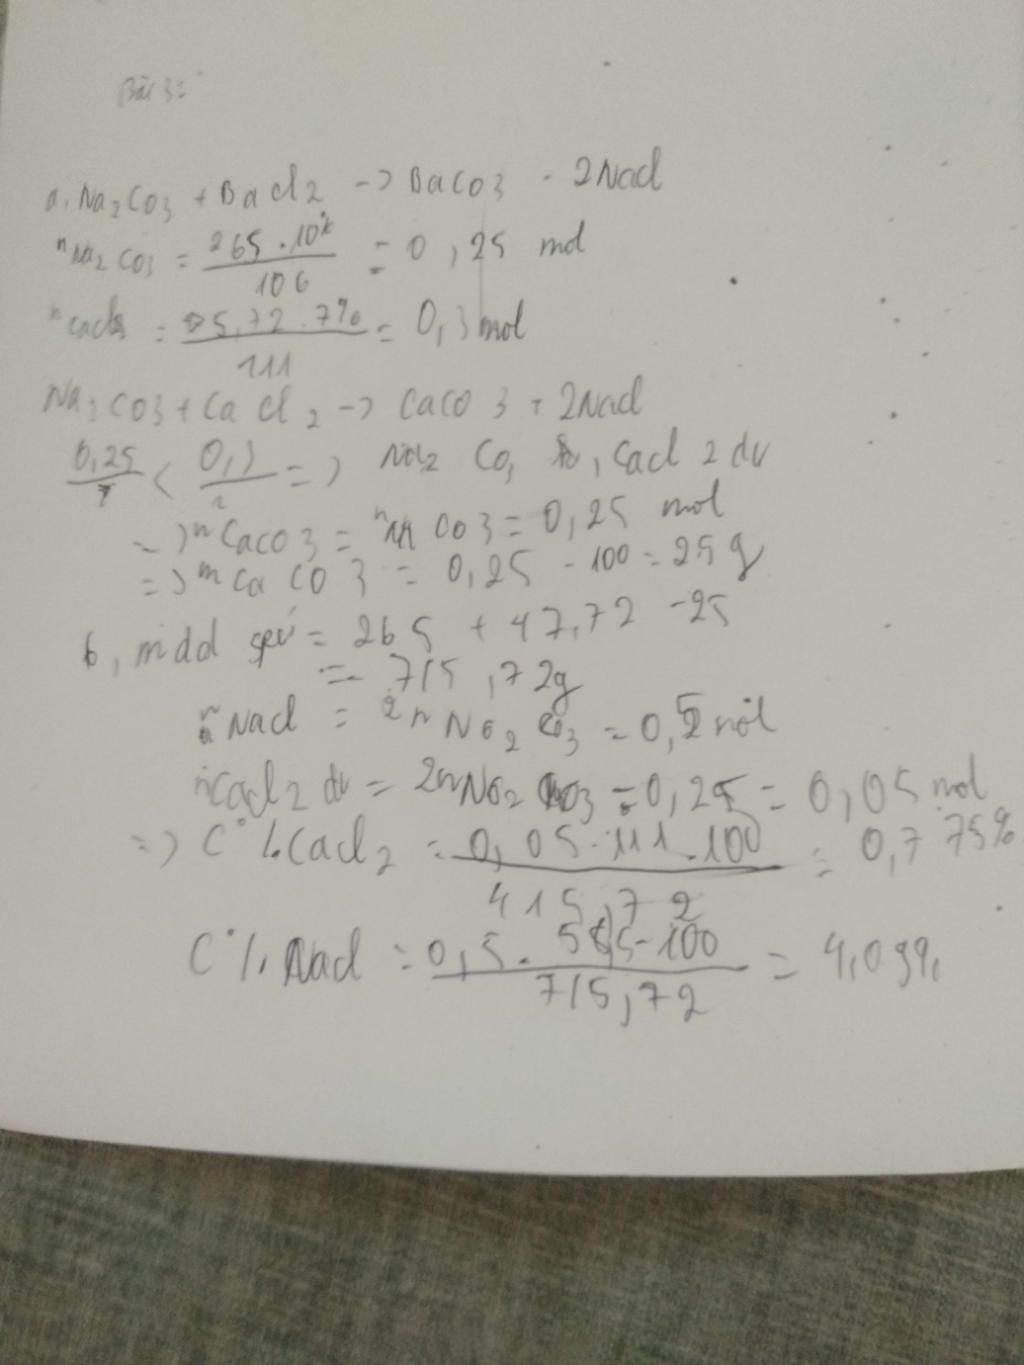 Bài 3:
a, Na2CO3 + BaCl2 -> BaCO3 - 2NaCl
nNa2CO3 = 265.10% / 106 = 0,25 mol
= 5,72.7% / 111 = 0,3 mol
Na2CO3 + CaCl2 -> CaCO3 + 2NaCl
0,25 / 1 < 0,3 / => CO3 , CaCl2 dư
-) nCaCO3 = CO3 = 0,25 mol
=) mCaCO3 = 0,25 - 100 = 25g
b, mdd = 265 + 47,72 - 25
= 715,72g
nNaCl = 2nNa2CO3 = 0,5 mol
nCaCl2 dư = 2nNa2CO3 = 0,25 = 0,05 mol
=) C%CaCl2 = 0,05.111.100 / 415,72 = 0,775%
C%NaCl = 0,5. 100 / 715,72 = 4,09%